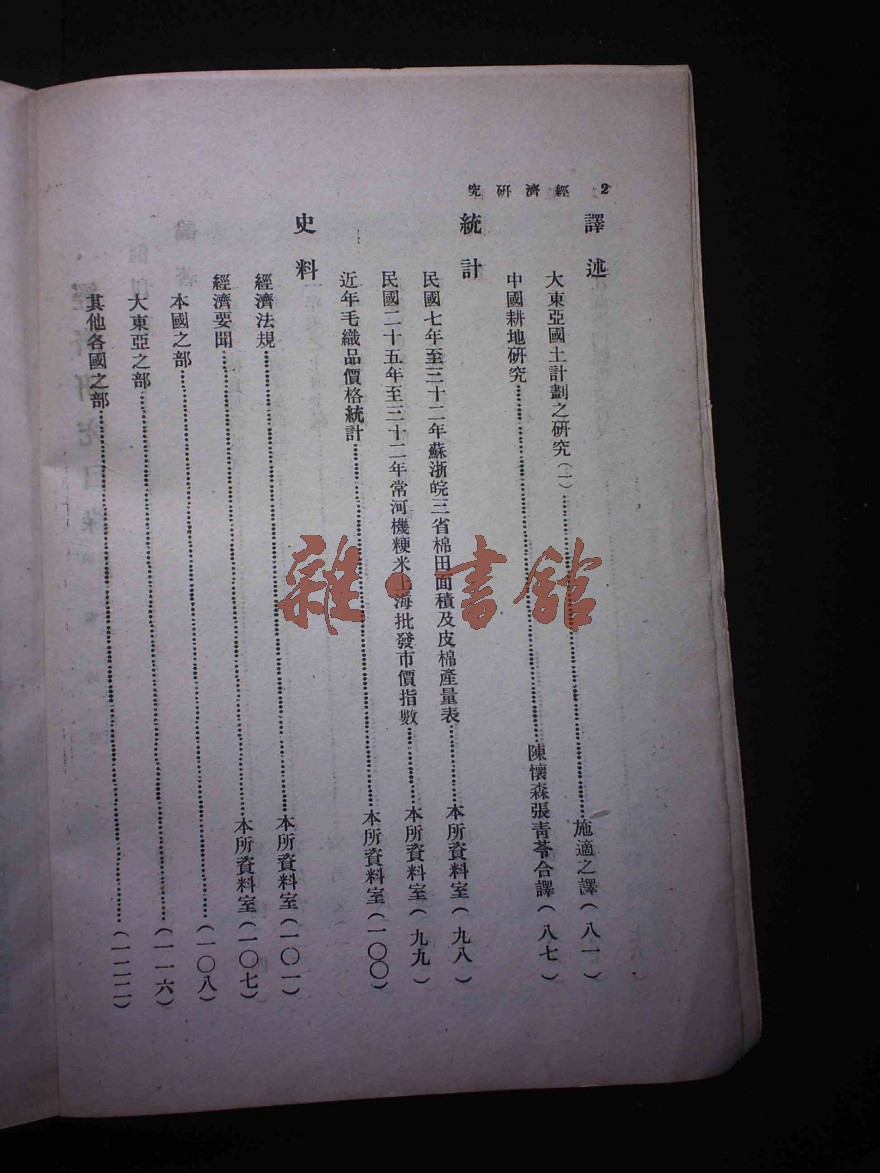 經濟研究 2
譯述
大東亞國土計劃之研究(一)……施適之譯(八一)
中國耕地研究……陳懷森張青苓合譯(八七)
統計
民國七年至三十二年蘇浙皖三省棉田面積及皮棉產量表……本所資料室(九八)
民國二十五年至三十二年常河機粳米上海批發市價指數……本所資料室(九九)
近年毛織品價格統計……本所資料室(一〇〇)
史料
經濟法規……本所資料室(一〇一)
經濟要聞……本所資料室(一〇七)
本國之部……(一〇八)
大東亞之部……(一一六)
其他各國之部……(一二二)
雜·書館